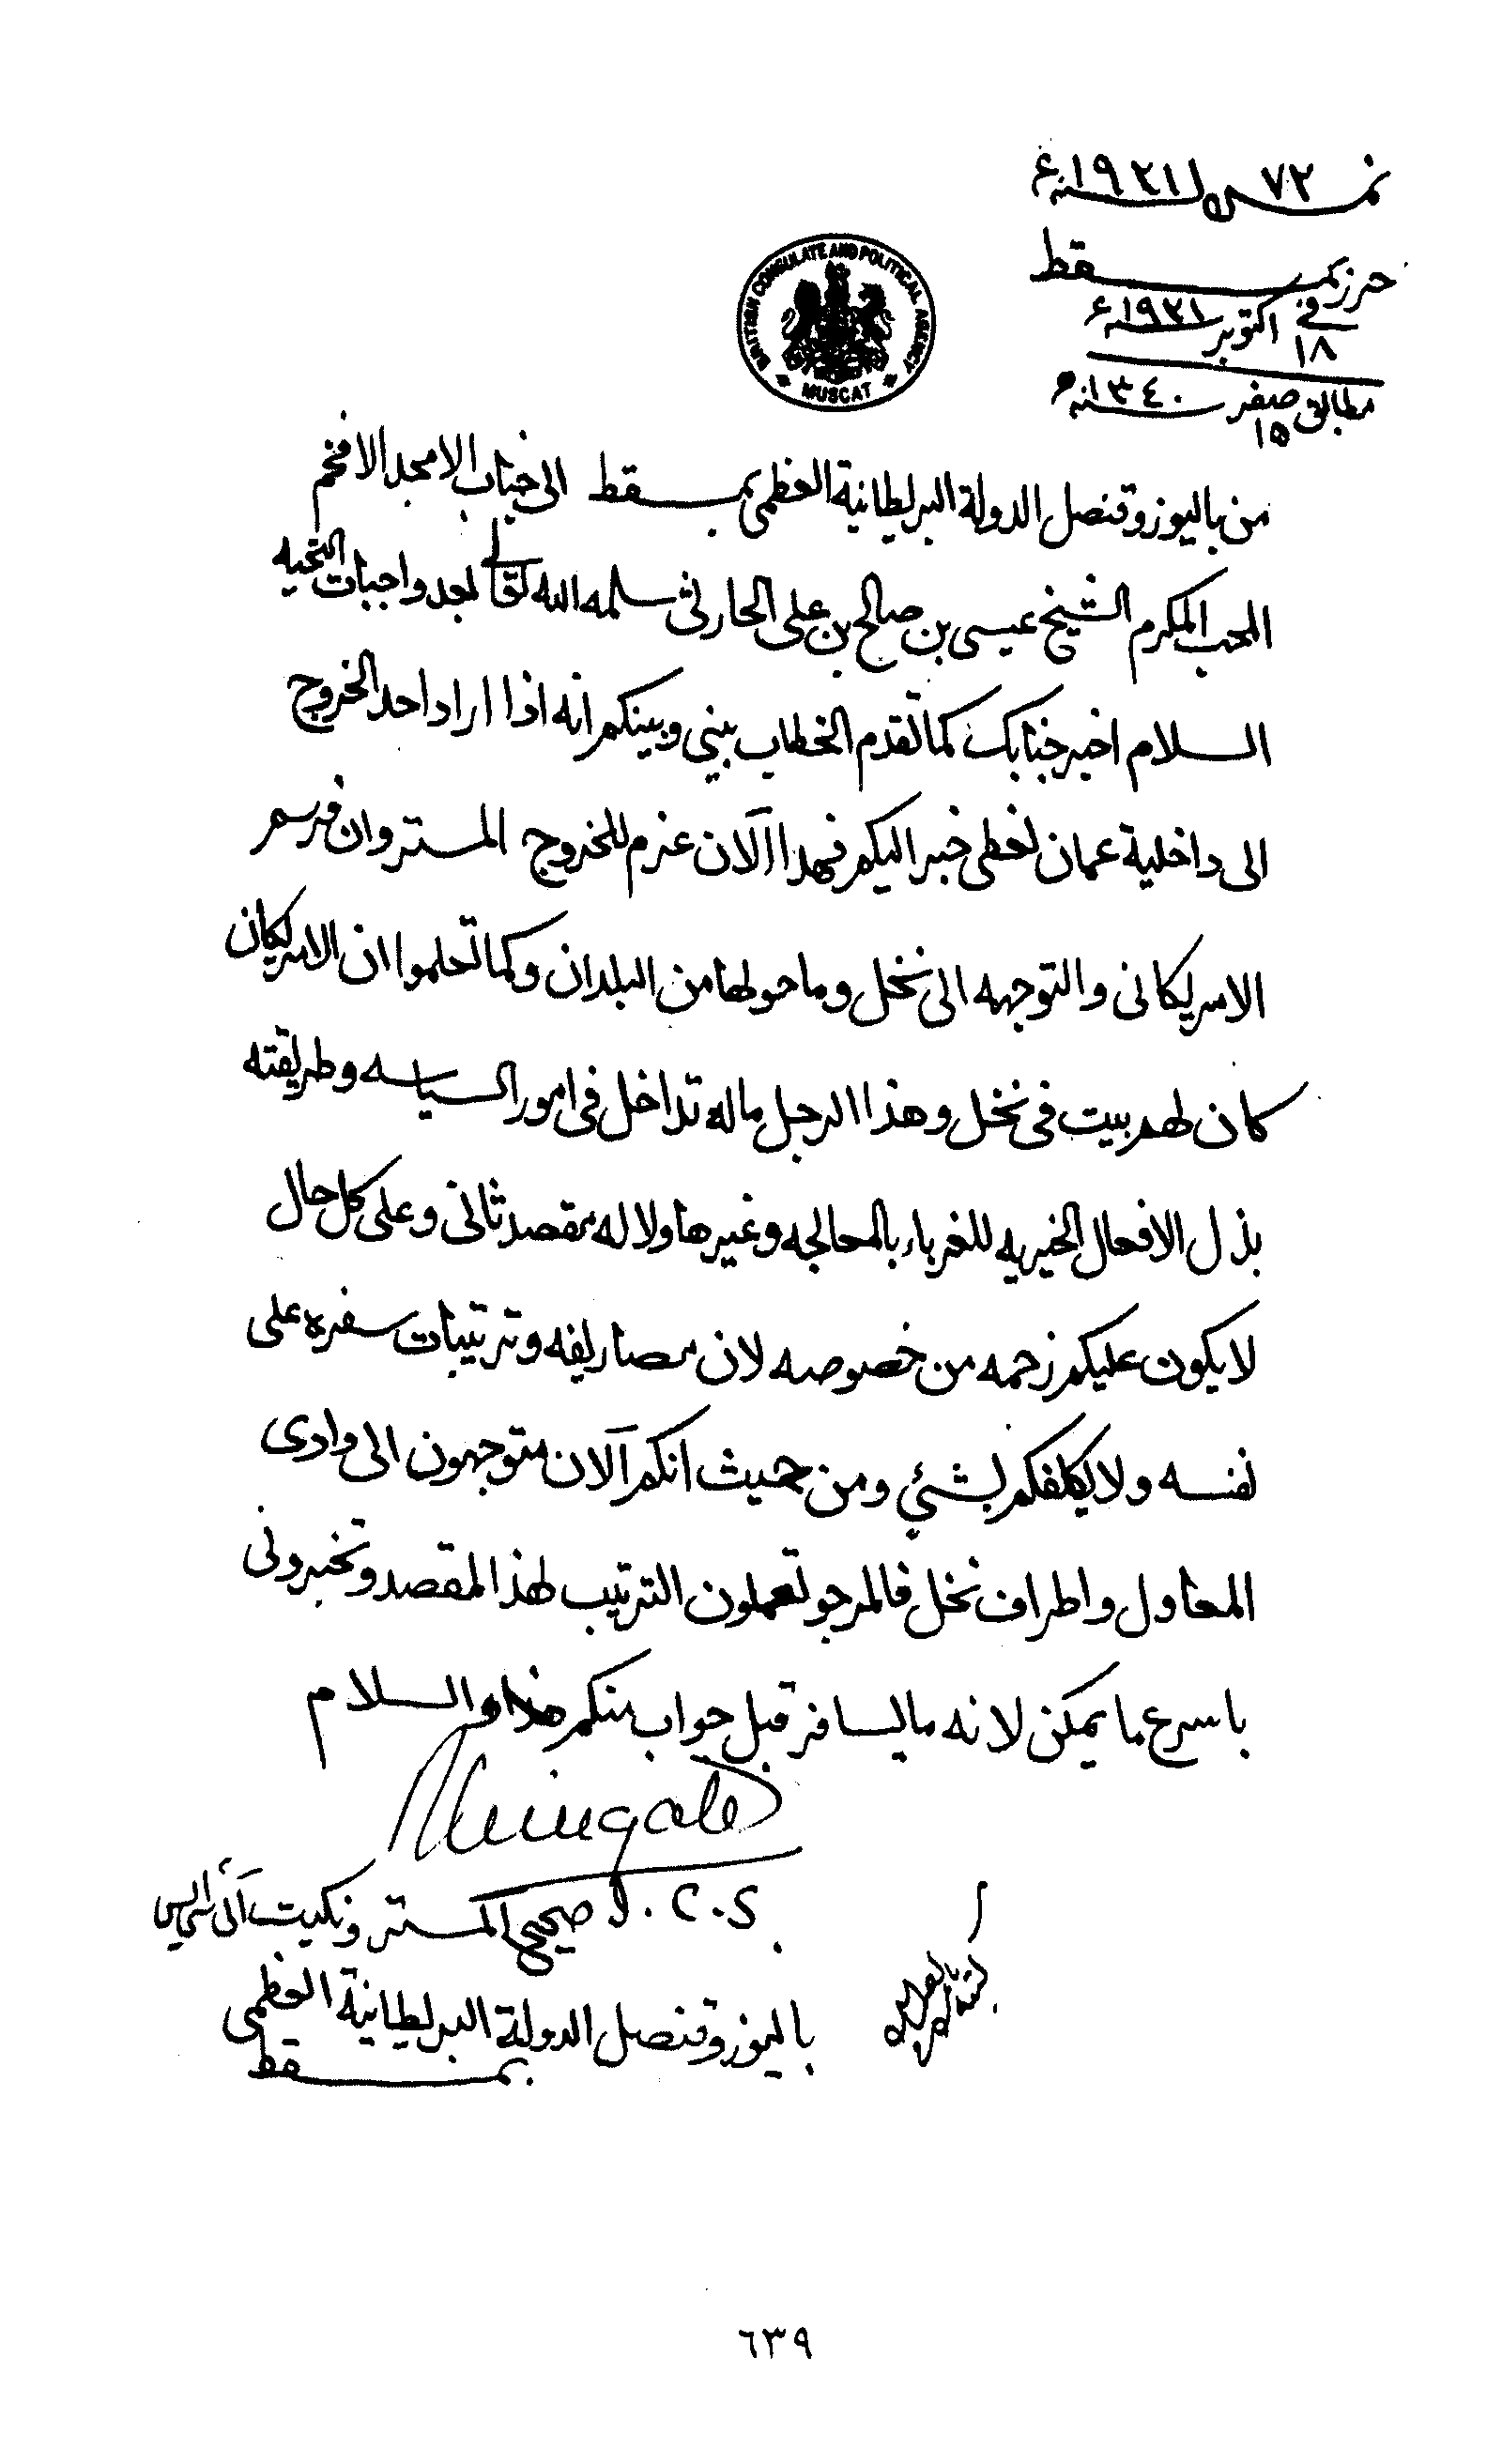 نمره ٧٢ لسنه ١٩٢١ء
حرر بمسقط
في ١٨ اكتوبر سنه ١٩٢١ء
مطابق ١٥ صفر سنه ١٣٤٠ه
BRITISH CONSULATE AND POLITICAL AGENCY
MUSCAT
من باليوز وقنصل الدولة البريطانية العظمى بمسقط الى جناب الامجد الافخم
المحب المكرم الشيخ عيسى بن صالح بن علي الحارثي سلمه الله تعالى بعد واجبات التحيه
السلام اخبر جنابك كما تقدم الخطاب بيني وبينكم انه اذا اراد احد الخروج
الى داخلية عمان نعطى خبر اليكم فهذا الآن عزم للخروج المستر وان فرسم
الامريكانى والتوجه الى نخل وما حولها من البلدان وكما تعلموا ان الامريكان
كان لهم بيت فى نخل وهذا الرجل ماله تداخل فى امور السياسه وطريقته
بذل الافعال الخيريه للغرباء بالمعالجه وغيرها ولا له مقصد ثانى وعلى كل حال
لا يكون عليكم زحمه من خصوصه لان مصاريفه وترتيبات سفره على
نفسه ولا يكلفكم بشئي ومن حيث انكم الآن متوجهون الى وادى
المعاول واطراف نخل فالمرجو تعملون الترتيب لهذا المقصد وتخبرونى
باسرع ما يمكن لانه ما يسافر قبل جواب منكم هذا والسلام
Wingate
صحيح المستر ونكيت آئى سي ايس
باليوز وقنصل الدولة البريطانية العظمى
بمسقط
٦٣٩